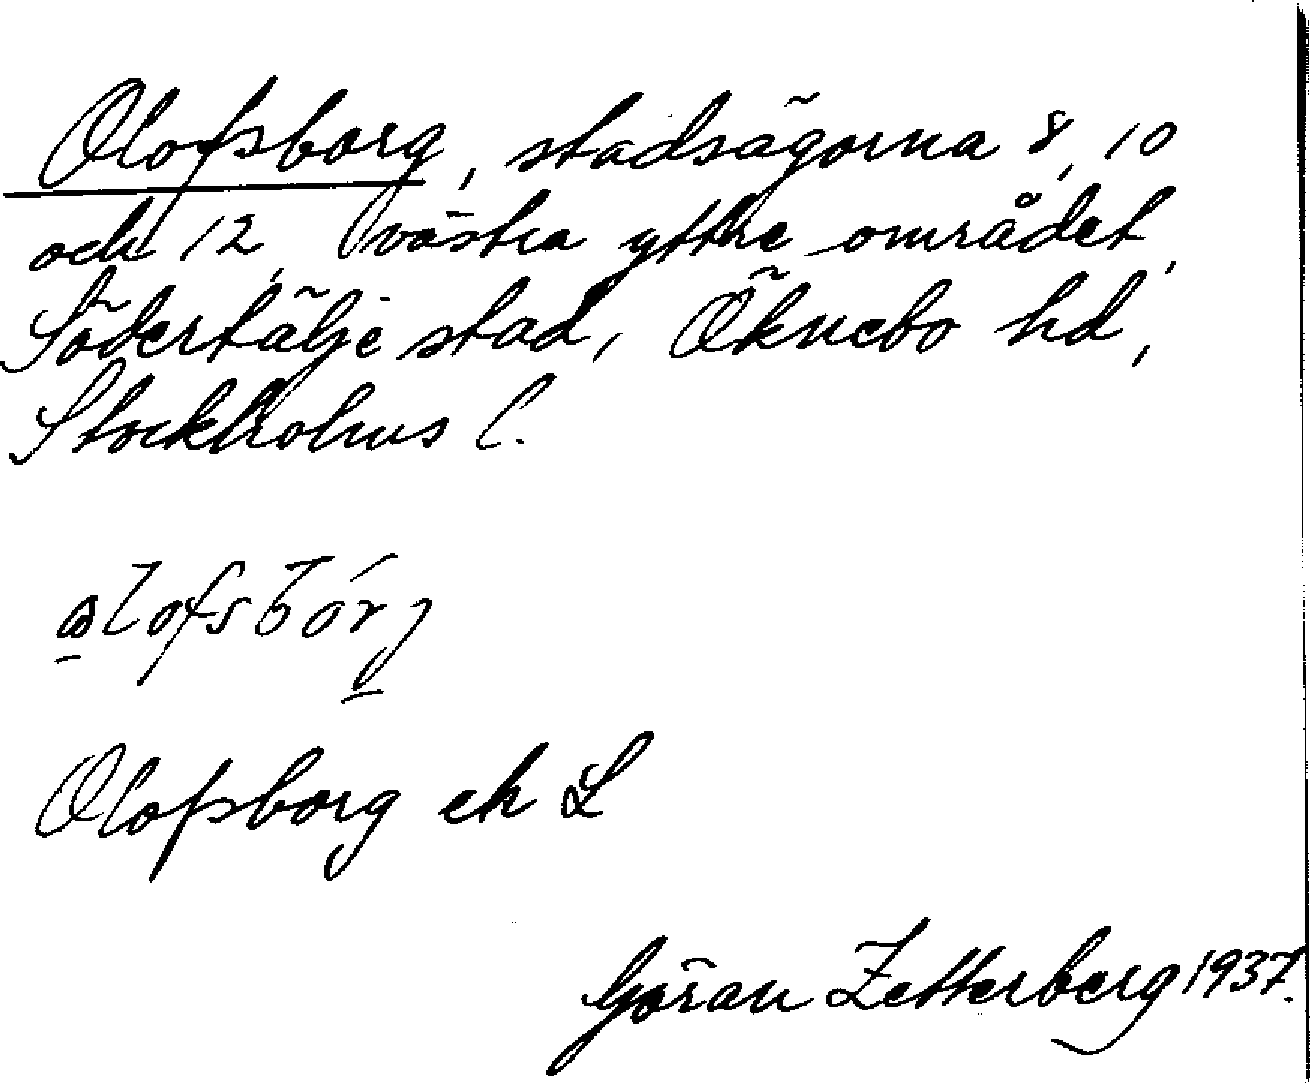 Olofsborg, stadsägorna 8, 10
och 12, västra yttre området,
Södertälje stad, Öknebo hd,
Stockholms l.
Olofsborg ek L
Göran Zetterberg 1937.